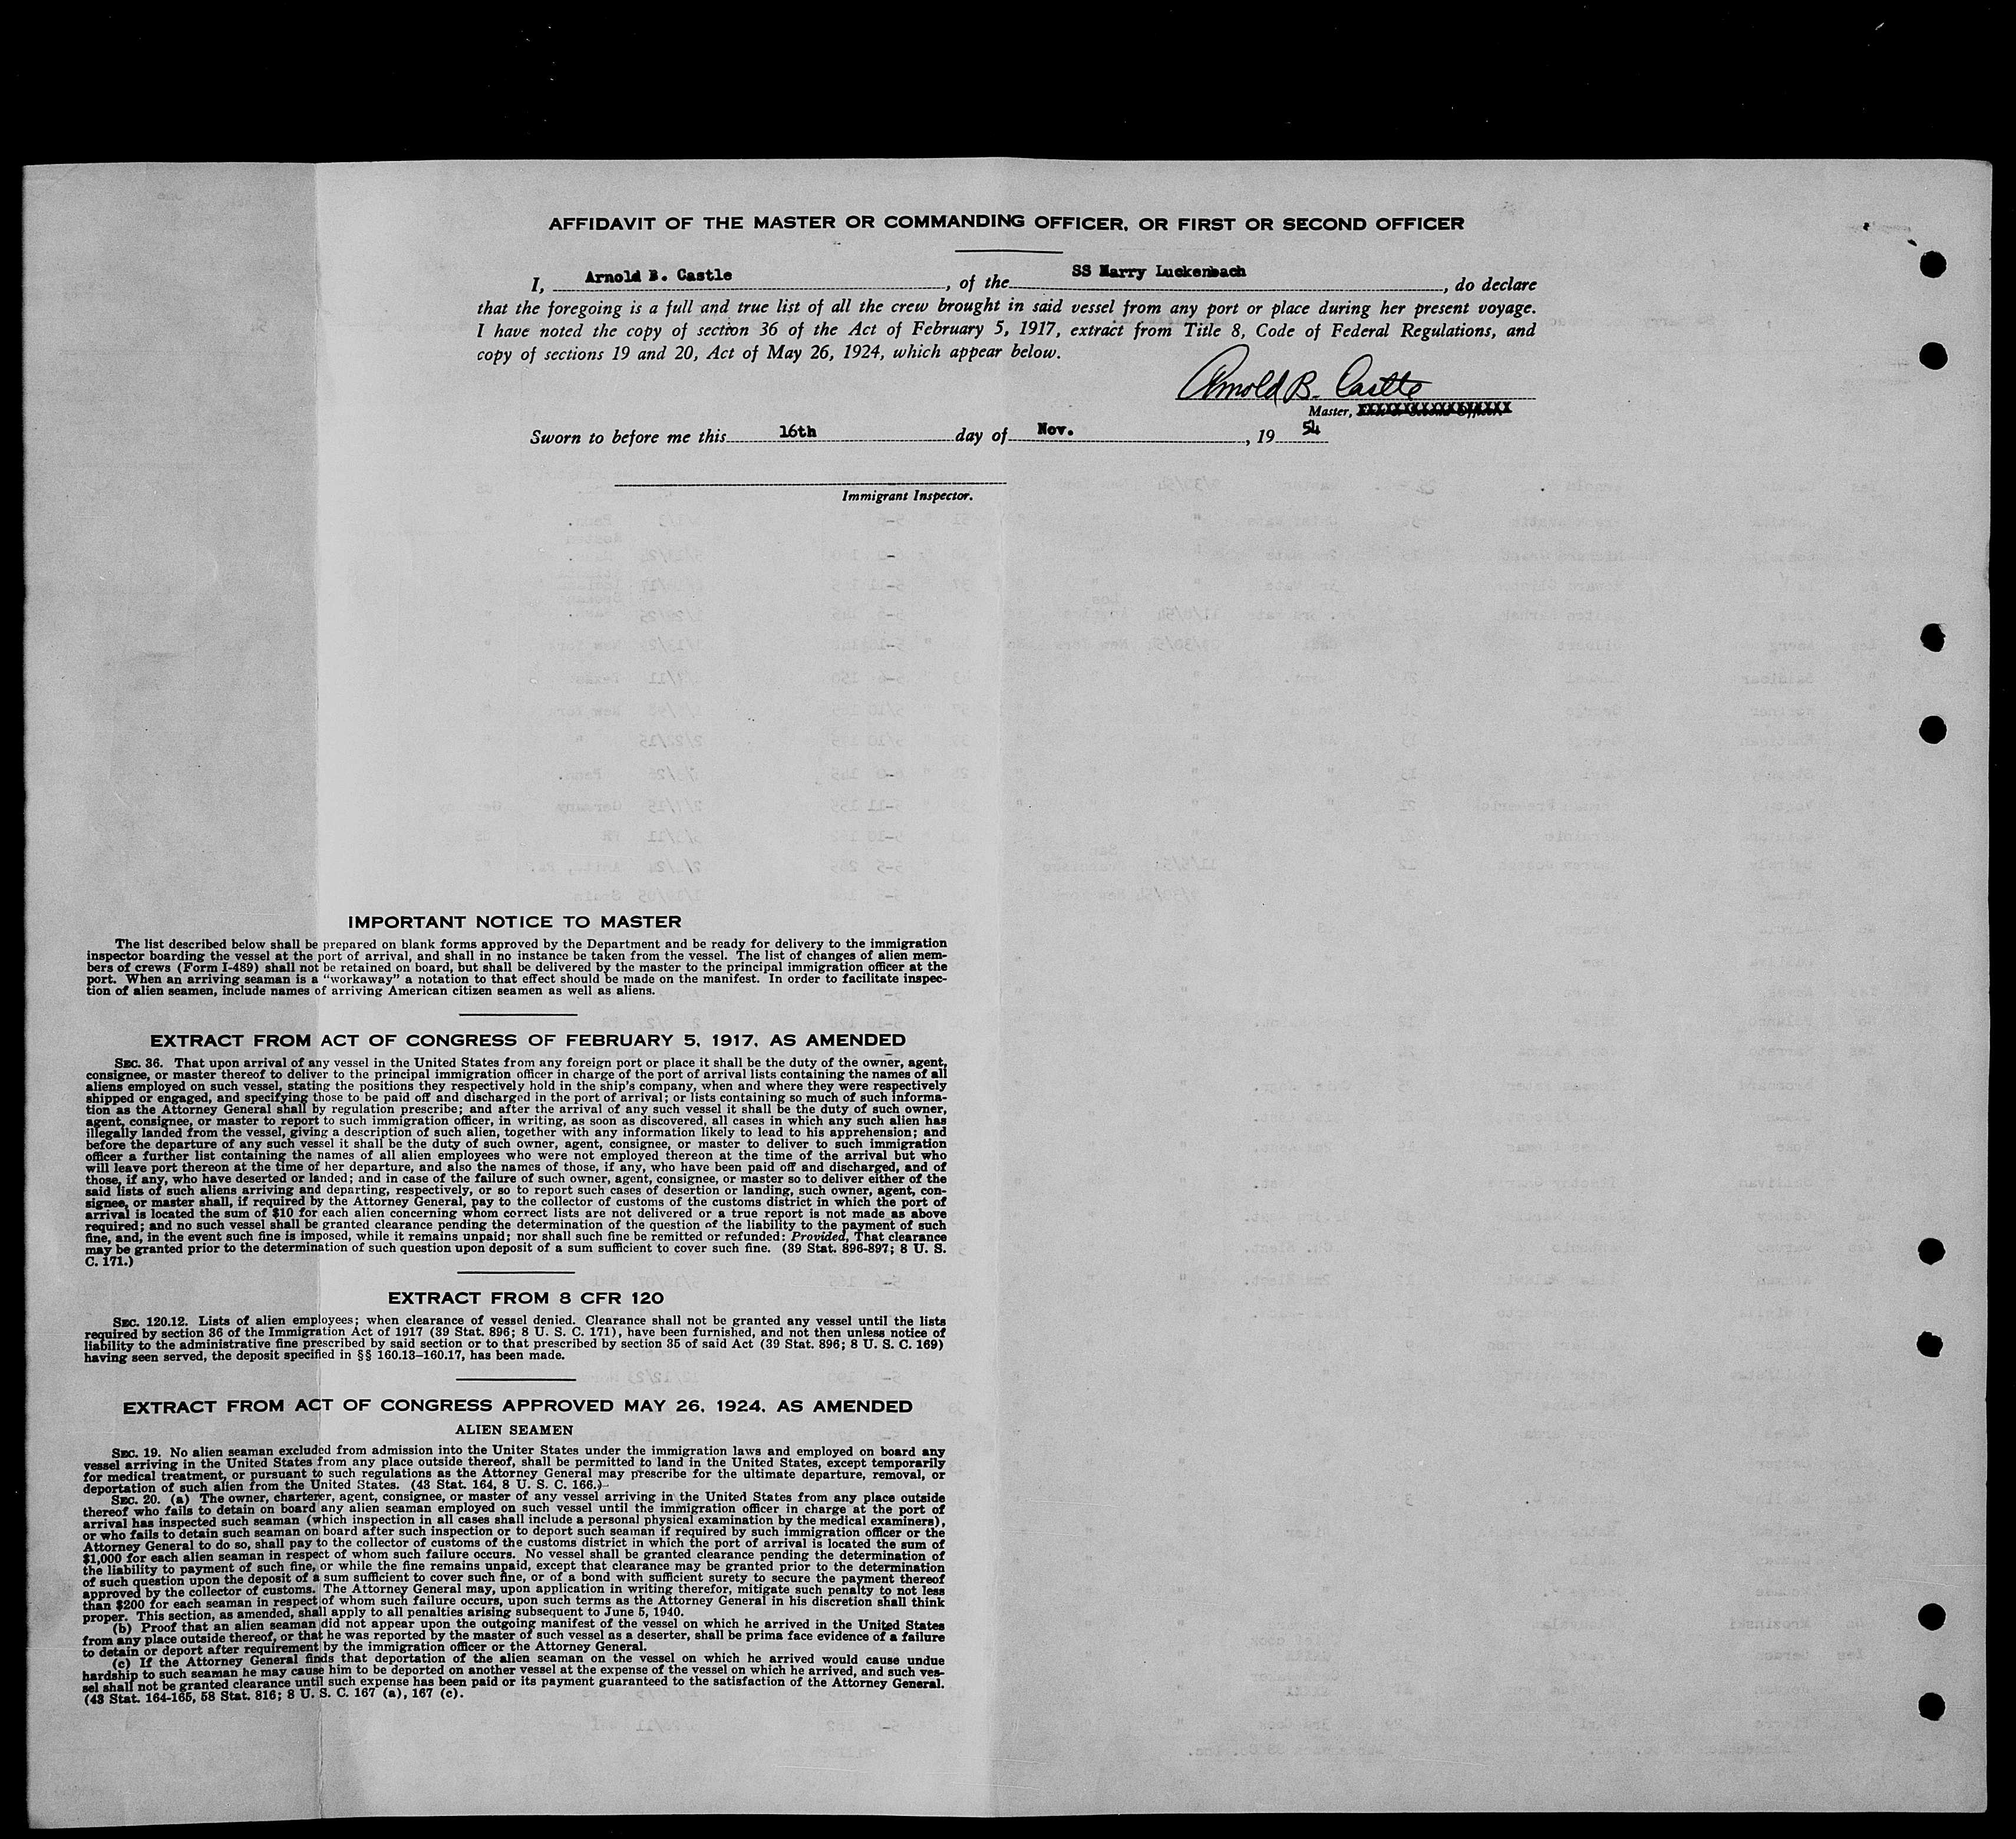 AFFIDAVIT OF THE MASTER OR COMMANDING OFFICER, OR FIRST OR SECOND OFFICER
I, Arnold B. Castle, of the SS Harry Luckenbach, do declare
that the foregoing is a full and true list of all the crew brought in said vessel from any port or place during her present voyage.
I have noted the copy of section 36 of the Act of February 5, 1917, extract from Title 8, Code of Federal Regulations, and
copy of sections 19 and 20, Act of May 26, 1924, which appear below.
Arnold B. Castle
Master,
Sworn to before me this 16th day of Nov., 19 54
Immigrant Inspector.
IMPORTANT NOTICE TO MASTER
The list described below shall be prepared on blank forms approved by the Department and be ready for delivery to the immigration
inspector boarding the vessel at the port of arrival, and shall in no instance be taken from the vessel. The list of changes of alien mem-
bers of crews (Form I-489) shall not be retained on board, but shall be delivered by the master to the principal immigration officer at the
port. When an arriving seaman is a "workaway" a notation to that effect should be made on the manifest. In order to facilitate inspec-
tion of alien seamen, include names of arriving American citizen seamen as well as aliens.
EXTRACT FROM ACT OF CONGRESS OF FEBRUARY 5, 1917, AS AMENDED
SEC. 36. That upon arrival of any vessel in the United States from any foreign port or place it shall be the duty of the owner, agent,
consignee, or master thereof to deliver to the principal immigration officer in charge of the port of arrival lists containing the names of all
aliens employed on such vessel, stating the positions they respectively hold in the ship's company, when and where they were respectively
shipped or engaged, and specifying those to be paid off and discharged in the port of arrival; or lists containing so much of such informa-
tion as the Attorney General shall by regulation prescribe; and after the arrival of any such vessel it shall be the duty of such owner,
agent, consignee, or master to report to such immigration officer, in writing, as soon as discovered, all cases in which any such alien has
illegally landed from the vessel, giving a description of such alien, together with any information likely to lead to his apprehension; and
before the departure of any such vessel it shall be the duty of such owner, agent, consignee, or master to deliver to such immigration
officer a further list containing the names of all alien employees who were not employed thereon at the time of the arrival but who
will leave port thereon at the time of her departure, and also the names of those, if any, who have been paid off and discharged, and of
those, if any, who have deserted or landed; and in case of the failure of such owner, agent, consignee, or master so to deliver either of the
said lists of such aliens arriving and departing, respectively, or so to report such cases of desertion or landing, such owner, agent, con-
signee, or master shall, if required by the Attorney General, pay to the collector of customs of the customs district in which the port of
arrival is located the sum of $10 for each alien concerning whom correct lists are not delivered or a true report is not made as above
required; and no such vessel shall be granted clearance pending the determination of the question of the liability to the payment of such
fine, and, in the event such fine is imposed, while it remains unpaid; nor shall such fine be remitted or refunded: Provided, That clearance
may be granted prior to the determination of such question upon deposit of a sum sufficient to cover such fine. (39 Stat. 896-897; 8 U. S.
C. 171.)
EXTRACT FROM 8 CFR 120
SEC. 120.12. Lists of alien employees; when clearance of vessel denied. Clearance shall not be granted any vessel until the lists
required by section 36 of the Immigration Act of 1917 (39 Stat. 896; 8 U. S. C. 171), have been furnished, and not then unless notice of
liability to the administrative fine prescribed by said section or to that prescribed by section 35 of said Act (39 Stat. 896; 8 U. S. C. 169)
having seen served, the deposit specified in §§ 160.13-160.17, has been made.
EXTRACT FROM ACT OF CONGRESS APPROVED MAY 26, 1924, AS AMENDED
ALIEN SEAMEN
SEC. 19. No alien seaman excluded from admission into the Uniter States under the immigration laws and employed on board any
vessel arriving in the United States from any place outside thereof, shall be permitted to land in the United States, except temporarily
for medical treatment, or pursuant to such regulations as the Attorney General may prescribe for the ultimate departure, removal, or
deportation of such alien from the United States. (43 Stat. 164, 8 U. S. C. 166.)
SEC. 20. (a) The owner, charterer, agent, consignee, or master of any vessel arriving in the United States from any place outside
thereof who fails to detain on board any alien seaman employed on such vessel until the immigration officer in charge at the port of
arrival has inspected such seaman (which inspection in all cases shall include a personal physical examination by the medical examiners),
or who fails to detain such seaman on board after such inspection or to deport such seaman if required by such immigration officer or the
Attorney General to do so, shall pay to the collector of customs of the customs district in which the port of arrival is located the sum of
$1,000 for each alien seaman in respect of whom such failure occurs. No vessel shall be granted clearance pending the determination of
the liability to payment of such fine, or while the fine remains unpaid, except that clearance may be granted prior to the determination
of such question upon the deposit of a sum sufficient to cover such fine, or of a bond with sufficient surety to secure the payment thereof
approved by the collector of customs. The Attorney General may, upon application in writing therefor, mitigate such penalty to not less
than $200 for each seaman in respect of whom such failure occurs, upon such terms as the Attorney General in his discretion shall think
proper. This section, as amended, shall apply to all penalties arising subsequent to June 5, 1940.
(b) Proof that an alien seaman did not appear upon the outgoing manifest of the vessel on which he arrived in the United States
from any place outside thereof, or that he was reported by the master of such vessel as a deserter, shall be prima face evidence of a failure
to detain or deport after requirement by the immigration officer or the Attorney General.
(c) If the Attorney General finds that deportation of the alien seaman on the vessel on which he arrived would cause undue
hardship to such seaman he may cause him to be deported on another vessel at the expense of the vessel on which he arrived, and such ves-
sel shall not be granted clearance until such expense has been paid or its payment guaranteed to the satisfaction of the Attorney General.
(43 Stat. 164-165, 58 Stat. 816; 8 U. S. C. 167 (a), 167 (c).